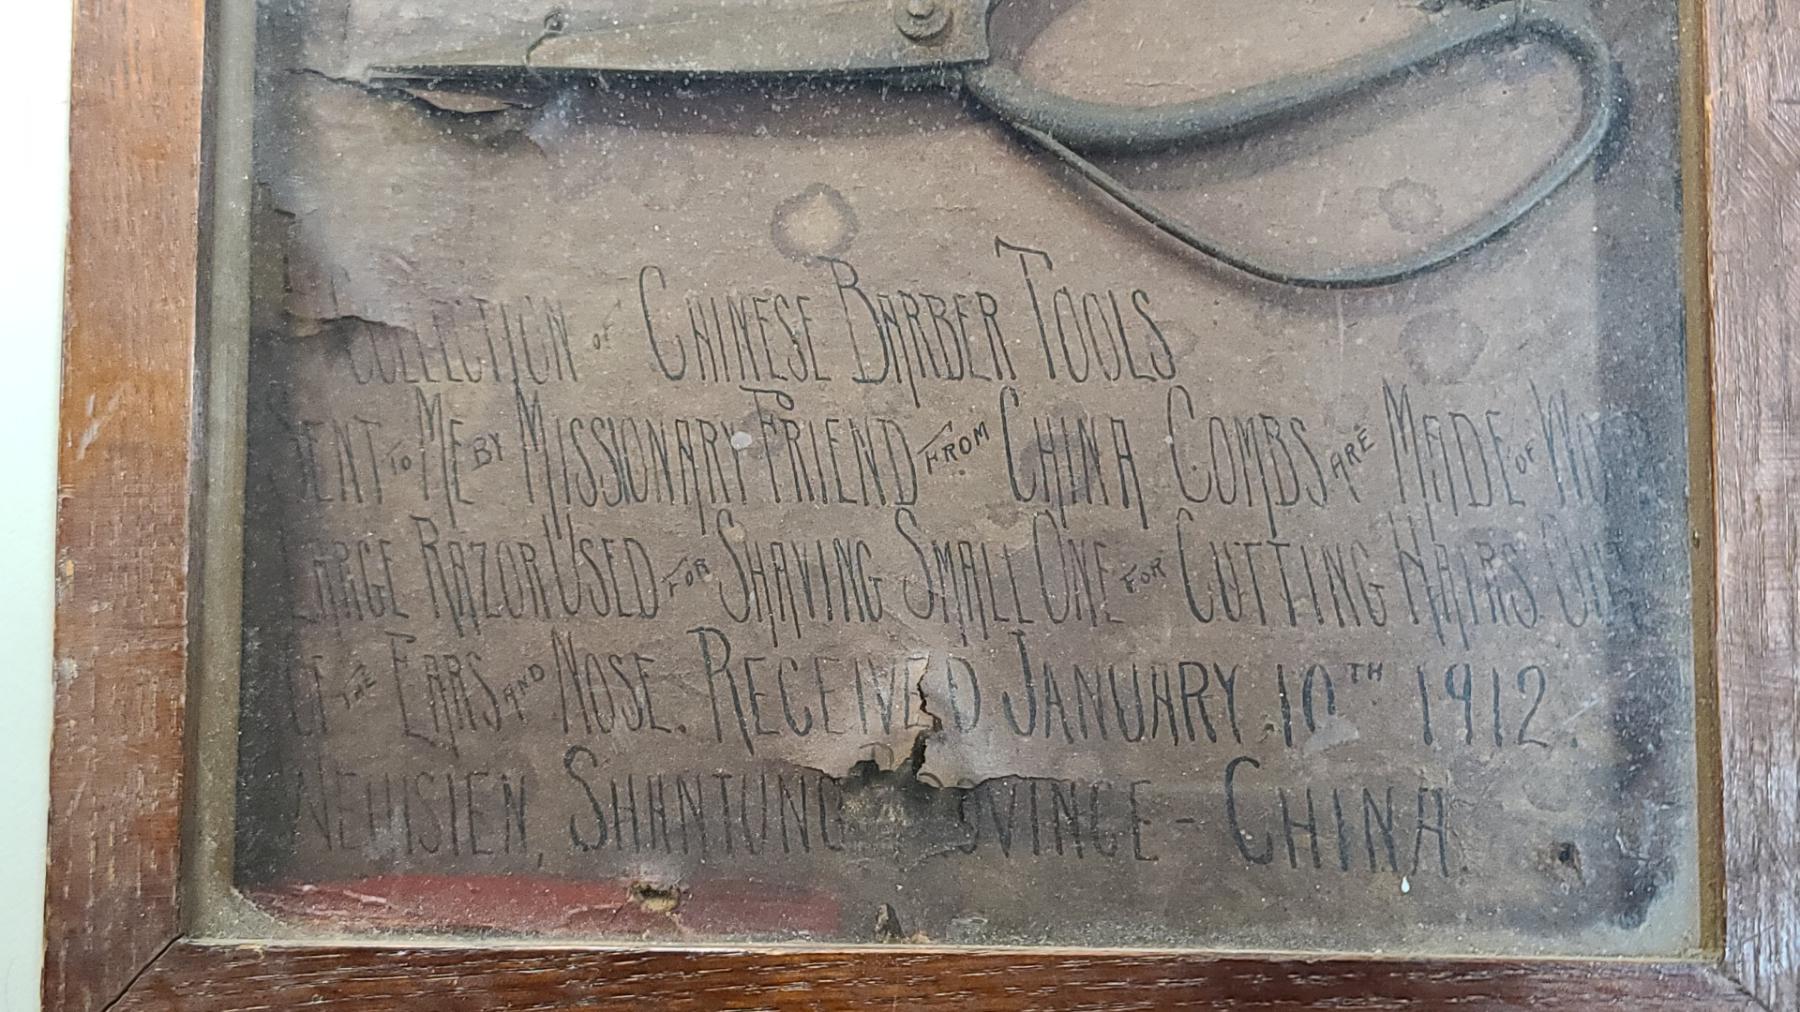 COLLECTION OF CHINESE BARBER TOOLS
SENT TO ME BY MISSIONARY FRIEND FROM CHINA COMBS ARE MADE OF WOOD
LARGE RAZOR USED FOR SHAVING SMALL ONE FOR CUTTING HAIRS OUT
OF THE EARS AND NOSE. RECEIVED JANUARY 10TH 1912.
SHANTUNG PROVINCE - CHINA.